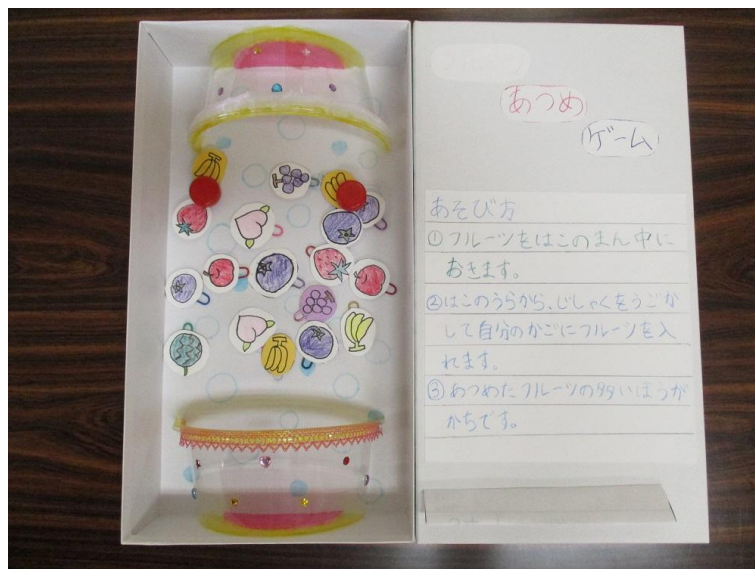 あつめ
ゲーム
あそび方
①フルーツをはこのまん中に
おきます。
②はこのうらから、じしゃくをうごか
して自分のかごにフルーツを入
れます。
③あつめたフルーツの多いほうが
かちです。